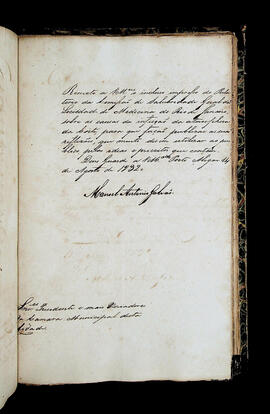 Remeto a VV.Sas. o incluso impresso do Rela-
torio da Comissão de Salubridade Geral da
Sociedade de Medicina do Rio de Janeiro,
sobre as causas da infecção da atmosphera
da Corte, para que fação publicar as suas
reflexões, que muito devem interessar ao pu-
blico pelas ideas e preceitos que contém.
Deos Guarde a VV.Sas. Porto Alegre 14
de Agosto de 1832.
Manoel Antonio Galvão
Snres. Presidente e mais Vereadores
da Camara Municipal desta
Cidade.